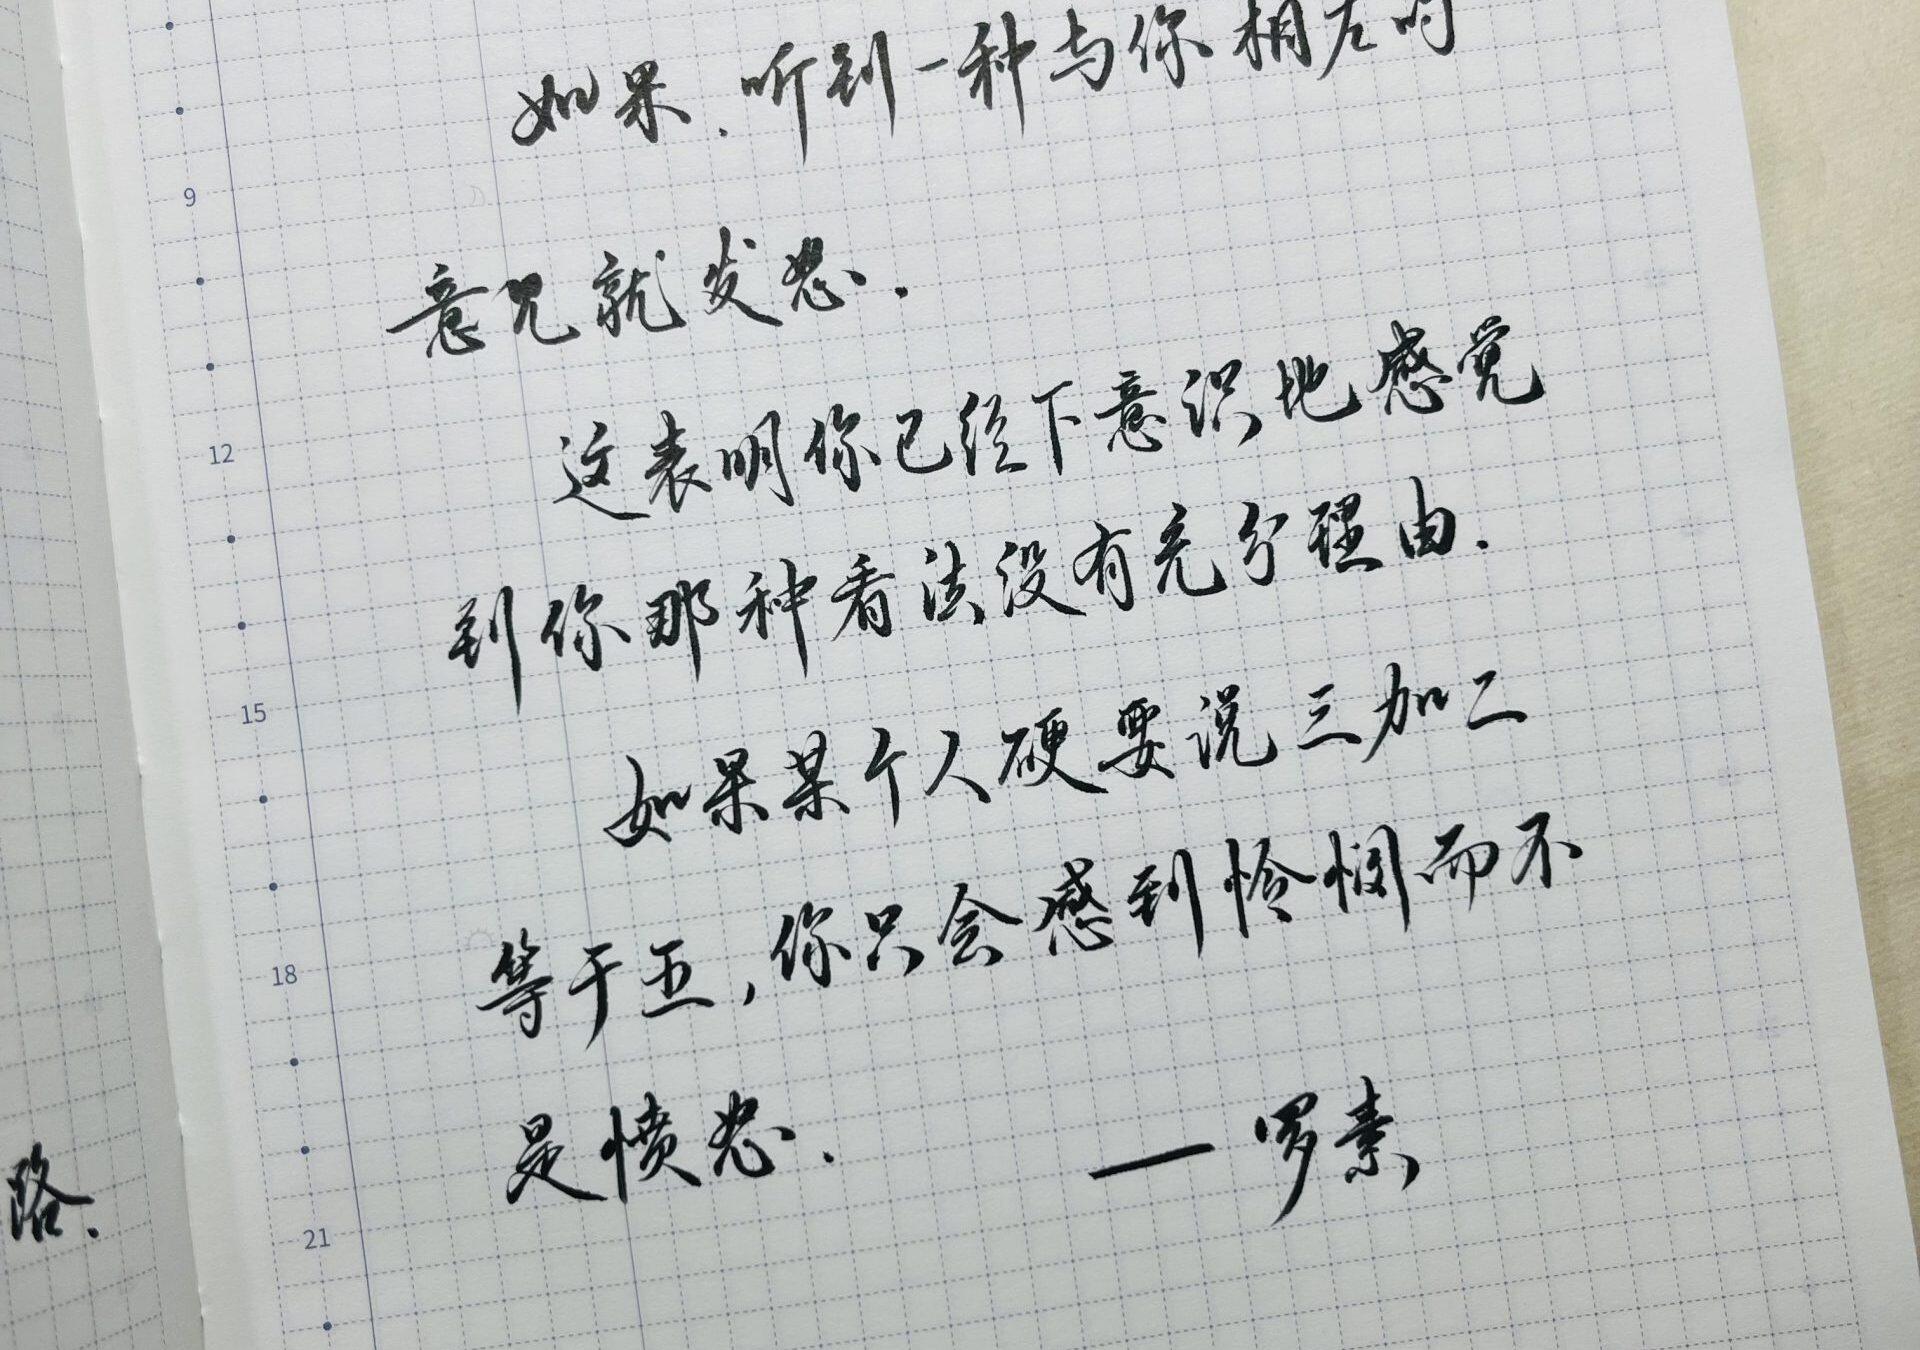 如果.听到一种与你相左的
9
意见就发怒.
12
这表明你已经下意识地感觉
到你那种看法没有充分理由.
15
如果某个人硬要说三加二
等于五,你只会感到怜悯而不
18
是愤怒. —罗素
21
路.